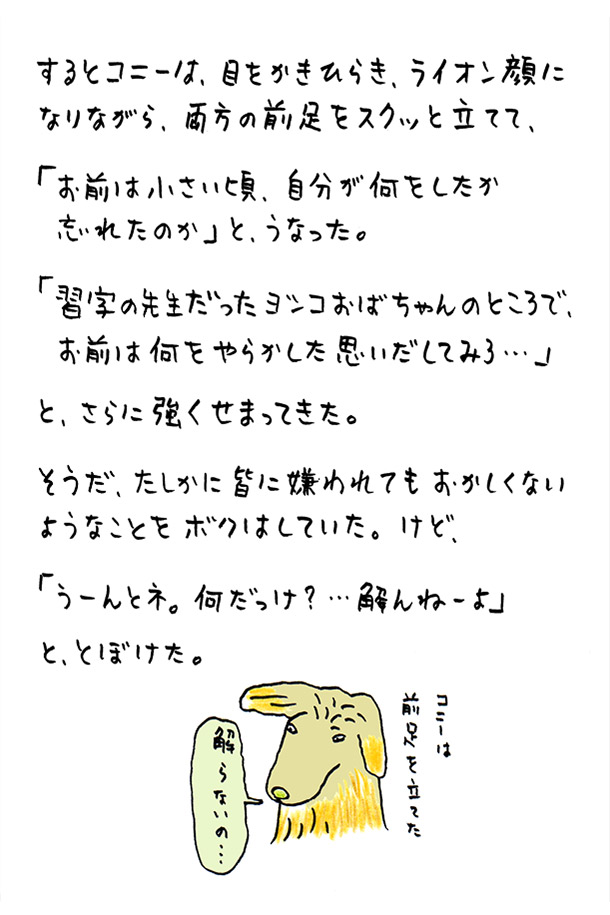 するとコニーは、目をかきひらき、ライオン顔に
なりながら、両方の前足をスクッと立てて、
「お前は小さい頃、自分が何をしたか
忘れたのか」と、うなった。
「習字の先生だったヨシコおばちゃんのところで、
お前は何をやらかした思いだしてみろ…」
と、さらに強くせまってきた。
そうだ、たしかに皆に嫌われてもおかしくない
ようなことをボクはしていた。けど、
「うーんとネ。何だっけ?…解んねーよ」
と、とぼけた。
コニーは
前足を立てた
解らないの…